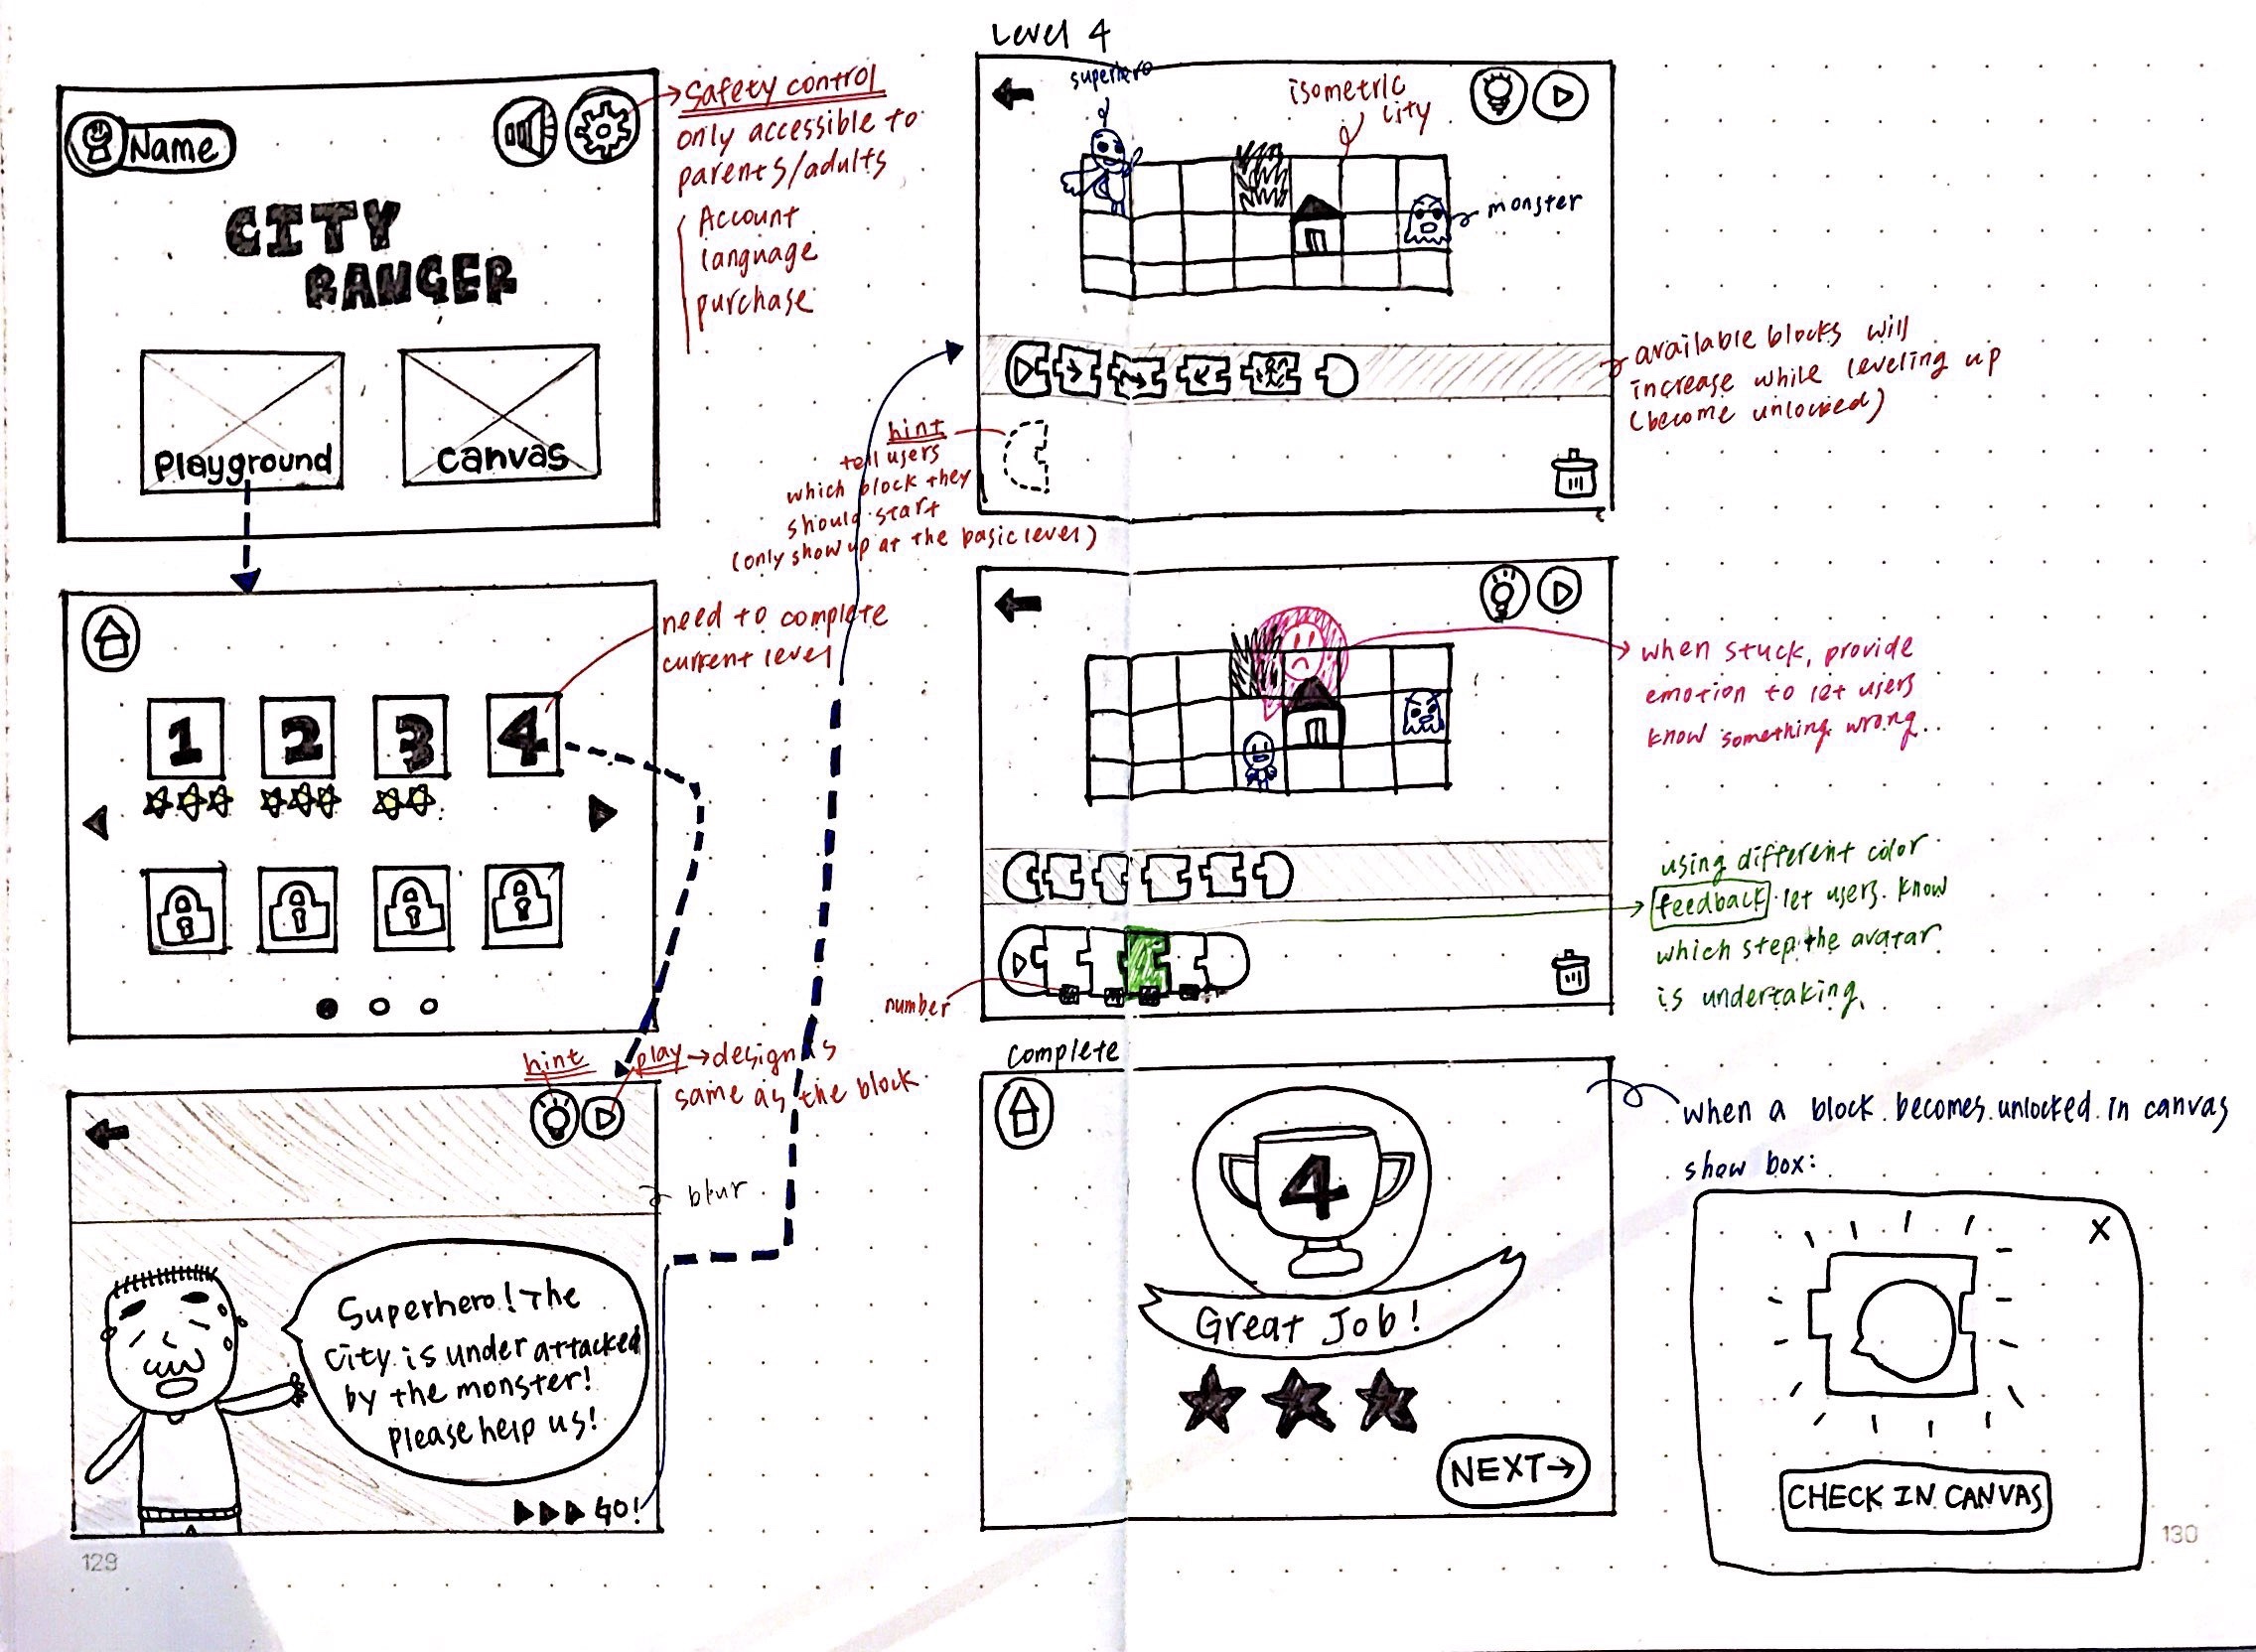 Name
CITY
RANGER
Playground
canvas
Safety control
only accessible to
parents/adults
Account
language
purchase
1
2
3
4
need to complete
current level
hint
play → design is
same as the block
blur
Superhero! The
city is under attacked
by the monster!
please help us!
GO!
129
Level 4
superhero
isometric
city
monster
available blocks will
increase while leveling up
(become unlocked)
hint
tell users
which block they
should start
(only show up at the basic level)
when stuck, provide
emotion to let users
know something wrong..
using different color
feedback let users know
which step the avatar
is undertaking.
number
complete
4
Great Job!
NEXT→
when a block becomes unlocked in canvas
show box:
X
CHECK IN CANVAS
130